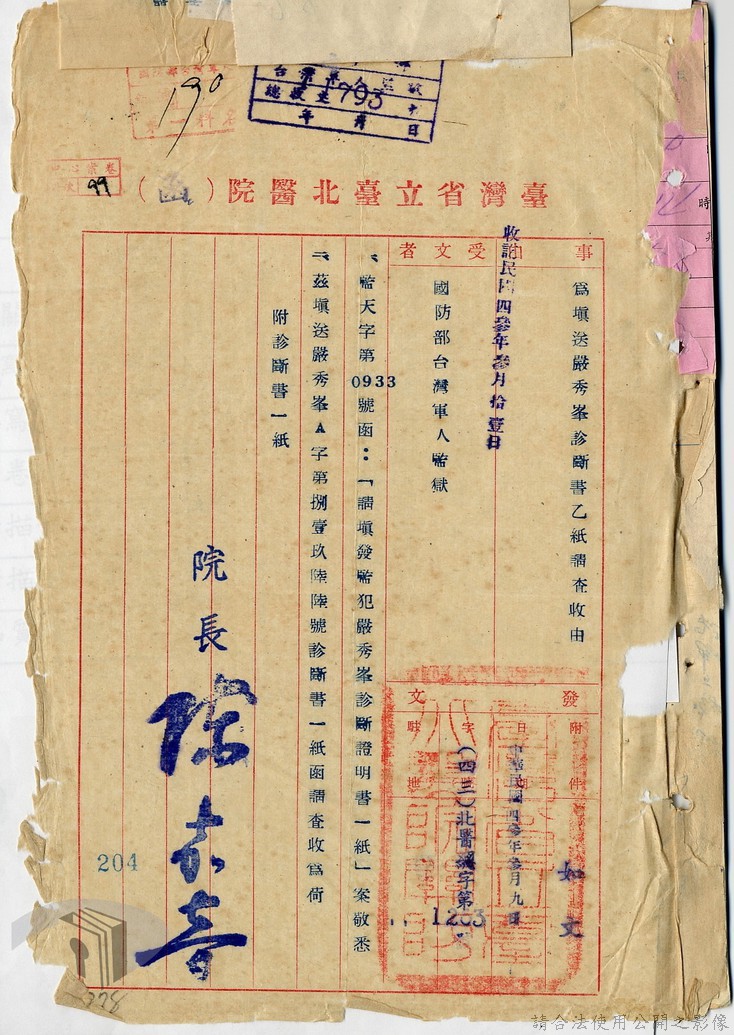 190
總收文 793 號
年 月 日
99
臺灣省立臺北醫院（函）
事由
為填送嚴秀峯診斷書乙紙請查收由
收誌民國四參年參月拾壹日
受文者
國防部台灣軍人監獄
發文
附件
如文
日期
中華民國四參年參月九日
字號
(四三)北醫 字第
1203
駐地
一、監天字第0933號函：「請填發監犯嚴秀峯診斷證明書一紙」案敬悉
二、茲填送嚴秀峯A字第捌壹玖陸陸號診斷書一紙函請查收為荷
附診斷書一紙
院長
204
328
請合法使用公開之影像